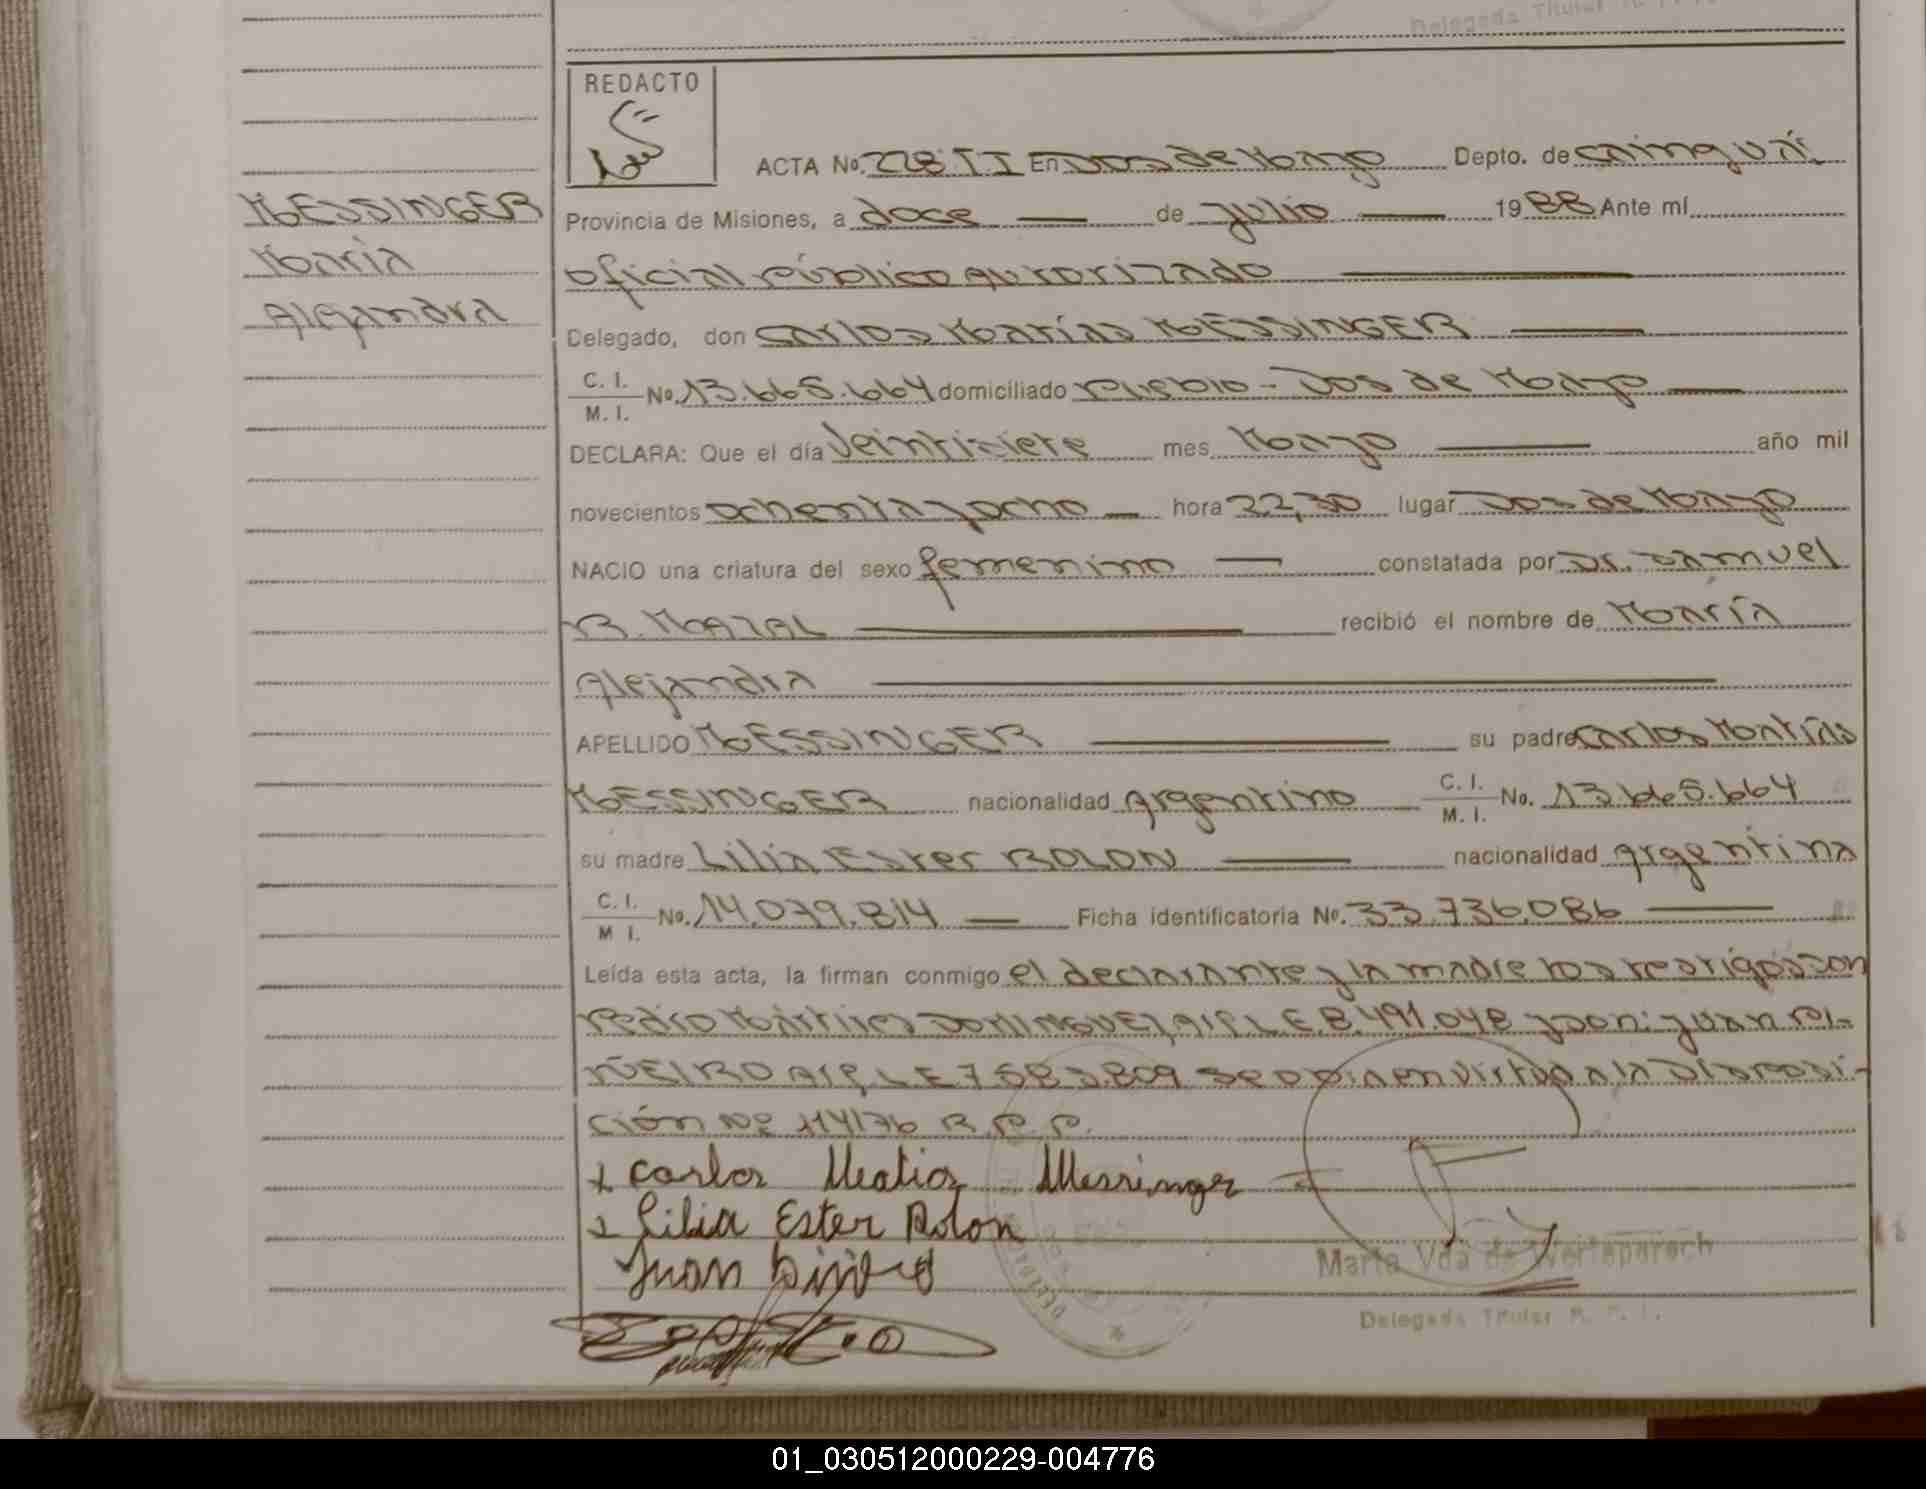 Delegada Titular R. P. P.
REDACTO
ACTA No. 228 TI En Dos de Mayo Depto. de Cainguás
MESSINGER
María
Alejandra
Provincia de Misiones, a doce de julio 1988 Ante mí
oficial público autorizado
Delegado, don Carlos Matías MESSINGER
C. I.
M. I. No. 13.665.664 domiciliado Pueblo - Dos de Mayo
DECLARA: Que el día Veintisiete mes Mayo año mil
novecientos ochenta y ocho hora 22,30 lugar Dos de Mayo
NACIO una criatura del sexo femenino constatada por Dr. Samuel
R. MAZAL recibió el nombre de María
Alejandra
APELLIDO MESSINGER su padre Carlos Matías
MESSINGER nacionalidad Argentino C. I.
M. I. No. 13.665.664
su madre Lilia Ester ROLON nacionalidad Argentina
C. I.
M I. No. 14.079.814 Ficha identificatoria No. 33.736.086
Leída esta acta, la firman conmigo el declarante y la madre los testigos: Don
Pedro Mártires DOMINGUEZ, Arg. L E. 8.491.048 y Don: Juan PI-
ÑEIRO Arg. L E 7 583.809 se opina en virtud a la Disposi-
ción Nº 114/76 R.P.P.
x Carlos Matias Messinger
x Lilia Ester Rolon
Juan
Marta Vda de
Delegada Titular R. P. P.
01_030512000229-004776